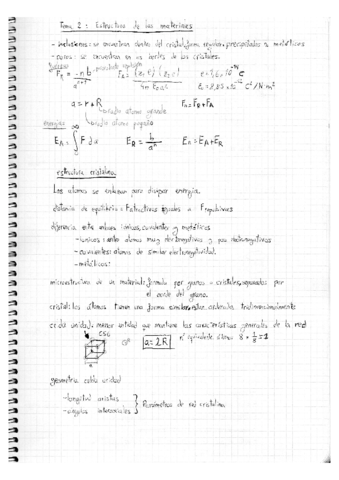 Tema 2: Estructura de los materiales
- inclusiones: se encuentran dentro del cristal, forma regular, precipitados o metálicos
- poros: se encuentran en los bordes de los cristales.
Fuerzas
F_R = -nb / a^(n+1) F_A = (z₁e)(z₂e) / 4πε₀a² e = 1,6 · 10^-19 C ε₀ = 8,85 · 10^-12 C²/N·m²
a = r + R F_N = F_R + F_A
radio átomo grande
radio átomo pequeño
energías
E_A = ∫ F da E_R = b / a^n E_N = E_A + E_R
estructura cristalina
Los átomos se enlazan para disipar energías.
distancia de equilibrio: F atractivas iguales a F repulsivas
diferencia entre enlaces iónicos, covalentes y metálicos
- iónicos: entre átomos muy electronegativos y poco electronegativos
- covalentes: átomos de similar electronegatividad.
- metálicos:
microestructura de un material: formada por granos = cristales separados
por el borde del grano.
cristal: los átomos tienen una forma similar, ordenada, tridimensionalmente
celda unidad: menor entidad que mantiene las características generales de la red
a = 2R nº equivalente átomos 8 · 1/8 = 1
geometría celda unidad
- longitud aristas
- ángulos interaxiales
Parámetros de red cristalina